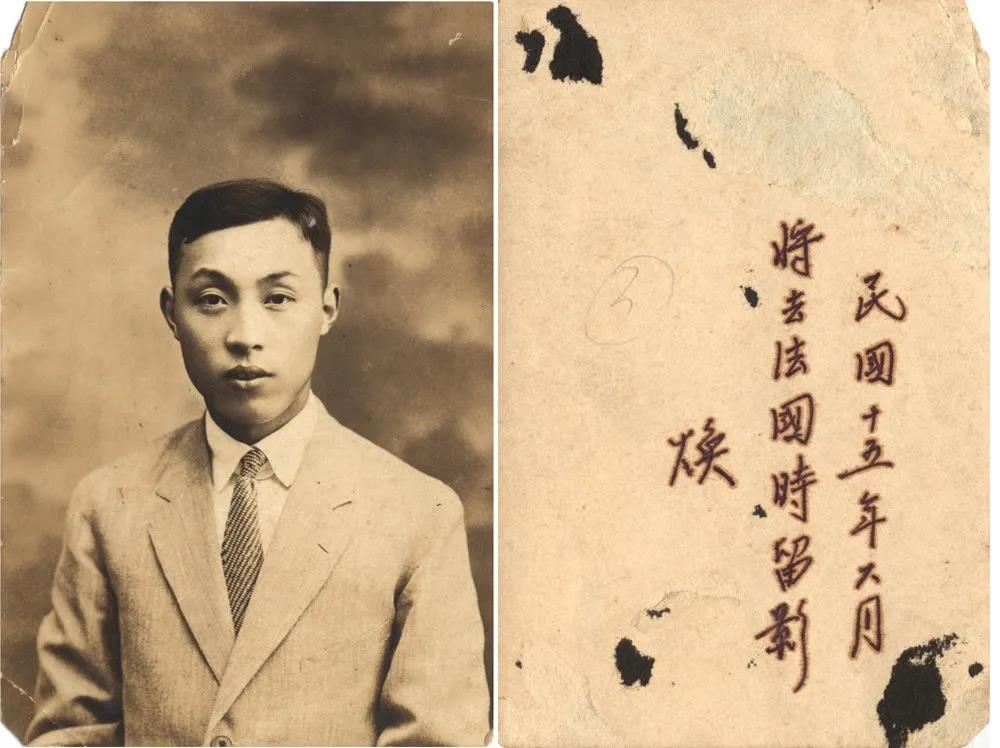 民國十五年六月
將去法國時留影
煥